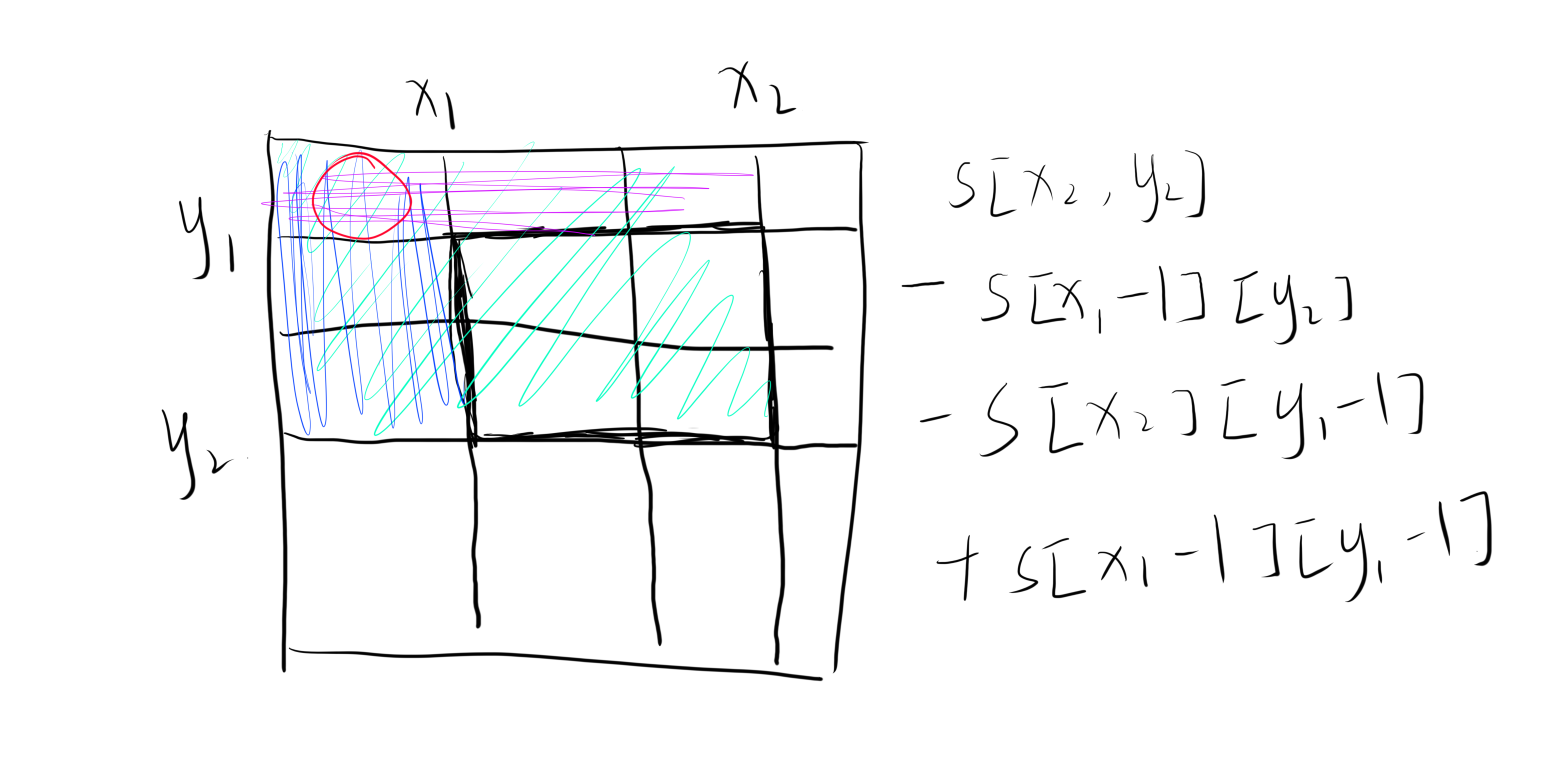 x1 x2
y1
y2
s[x2, y2]
- s[x1-1][y2]
- s[x2][y1-1]
+ s[x1-1][y1-1]